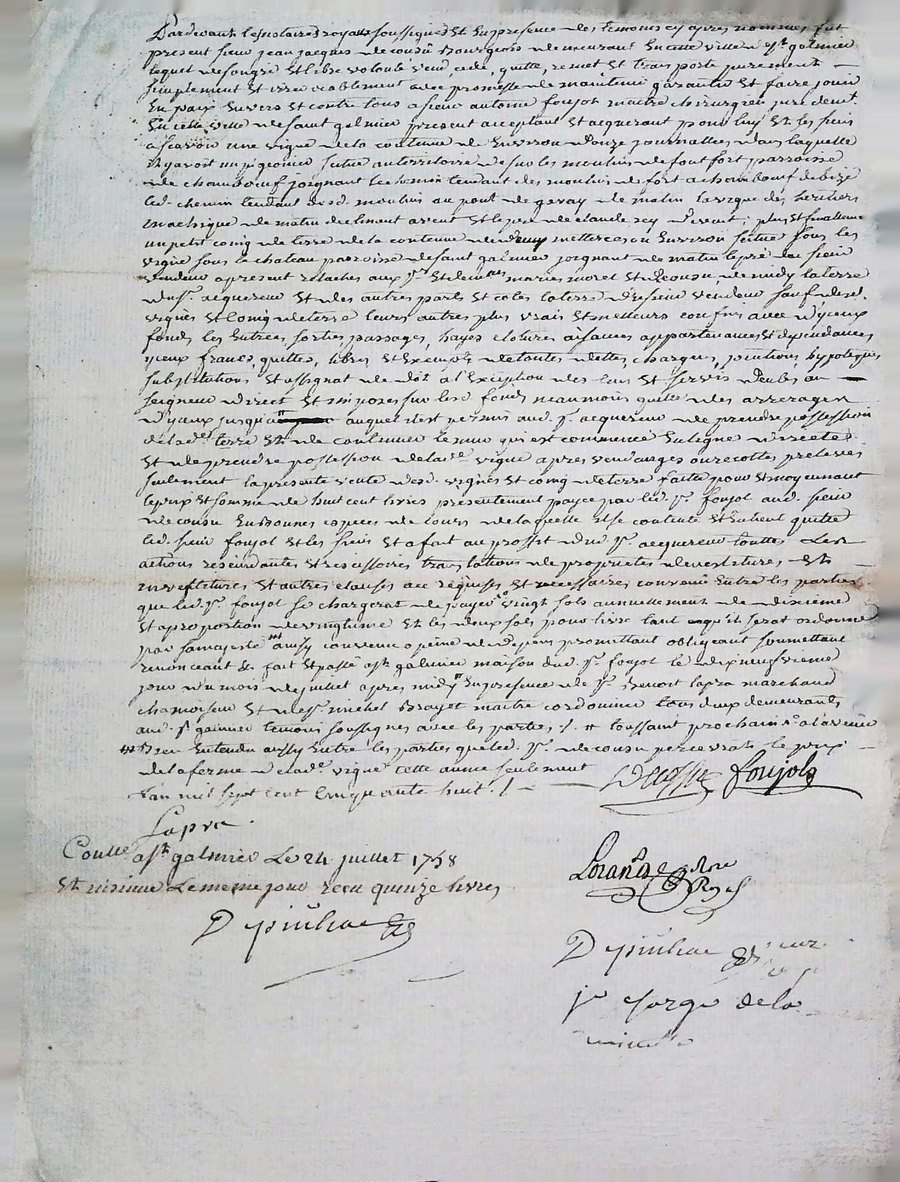 Pardevant Les notaires royaux soussignés Et En presence des temoins cy apres nommés fut
present sieur jean jacques de cousu Bourgeois demeurant En cette ville de st galmier
lequel de son gré Et libre volonté vend, cede, quitte, remet Et transporte purement
simplement Et irrevocablement avec promesse de maintenir garantir Et faire jouir
En paix Envers Et contre tous a sieur antoine foujol maitre chirurgien juré demt
En cette ville de saint galmier present acceptant Et acquerant pour luy Et les siens
a scavoir une vigne de la contenue de Environ douze journallées dans laquelle
il y avoit un pigeonier située au territoire de sur les moulins de font fort parroisse
de chambœuf joignant le chemin tendant des moulins de fort a chambœuf de bize
led. chemin tendant desd. moulins au pont de de matin la vigne des heritiers
de matin declinant a vent Et le pre de claude rey de ; plus Et finallement
un petit coing de terre de la contenue de deux metterées ou Environ située sous les
vigne sous le chateau parroisse de saint galmier joignant de matin le pré du sieur
vendeur a present relaché aux sr Et marie moret de midy la terre
dud. sr acquereur Et des autres parts Et cotés la terre dud sieur vendeur sauf desd.
vignes Et coing de terre leurs autres plus vrais Et meilleurs confins avec d'yceux
fonds les Entrées, sorties, passages, hayes clotures aisances appartenances Et dependances
yceux francs, quittes, libres Et Exempts de toutes dettes, charges, pentions, hypoteques
substitutions Et assignat de dot a l'Exception des cens Et servis deubs au
seigneur direct Et imposés sur lesd. fonds neanmoins quittes des arrerages
d'yceux jusqu'a auquel il est permis aud. sr acquereur de prendre possession
de lade terre Et de continuer le mur qui est commencé En ligne directe
Et de prendre possession de lade vigne apres vendanges ou recoltes prelevées
seulement la presente vente desd. vignes Et coing de terre faitte pour Et moyennant
le prix Et somme de huit cent livres presentement payée par led. sr foujol aud. sieur
de cousu En bonnes especes de cours de laquelle il se contente Et En tient quitte
led. sieur foujol Et les siens Et a fait au proffit dud. sr acquereur touttes les
actions rescindantes Et rescisoires translations de proprietés devestitures Et
investitures Et autres clauses au requises Et necessaires convenu Entre les parties
que led. sr foujol se chargerat de payer vingt sols annuellement de dixieme
Et a proportion de vingtieme Et les deux sols pour livre tant qu'il serat ordonné
par sa majesté ainsy convenu a peine de depens promettant obligeant soumettant
renonceant &c fait Et passé a st galmier maison dud. sr foujol le dix neufvieme
jour du mois de juillet apres midy En presence de sr Benoit lapra marchand
chamoiseur Et de sr michel Brayet maitre cordonnier tous deux demeurants
aud. st galmier temoins soussignés avec les parties ./. # toussaint prochain a l'avenir
# Bien Entendu aussy Entre les parties que led. sr de cousu percevrat le prix
de la ferme de lade vigne cette année seulement
L'an mil sept cent Cinquante huit. /.
Decossu foujols
Lapra.
Conllé a st galmier Le 24 juillet 1758
Et insinué Le meme jour recu quinze livres
Depinhac
Depinhac